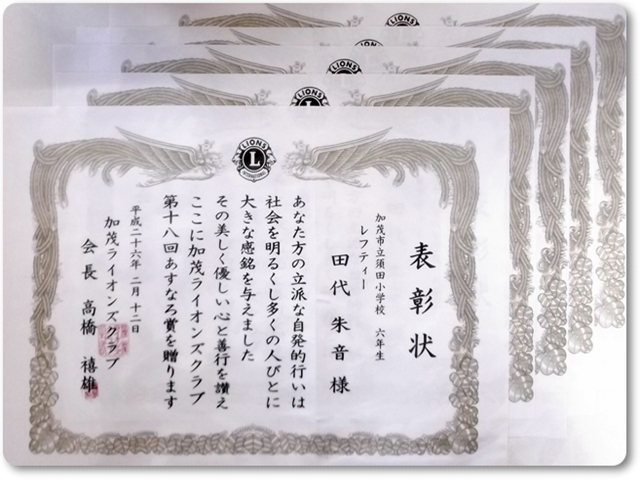 表彰状
加茂市立須田小学校 六年生
レフティー
田代朱音様
あなた方の立派な自発的行いは
社会を明るくし多くの人びとに
大きな感銘を与えました
その美しく優しい心と善行を讃え
ここに加茂ライオンズクラブ
第十八回あすなろ賞を贈ります
平成二十六年二月十二日
加茂ライオンズクラブ
会長 高橋禧雄
LIONS
L
INTERNATIONAL
LIONS
LIONS
LIONS